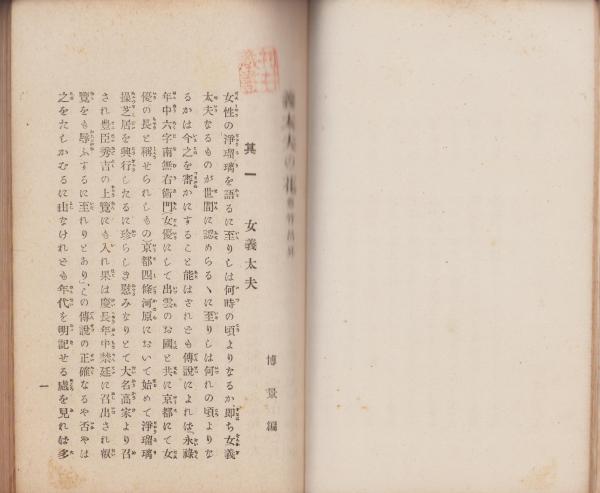 博景編
其一 女義太夫
女性の淨瑠璃を語るに至りしは何時の頃よりなるか、卽ち女義
太夫なるものが世間に認めらるヽに至りしは何れの頃よりな
るかは今之を審かにすること能はされとも傳說によれは「永祿
年中六字南無右衞門女優にして出雲のお國と共に京都にて女
優の長と稱せられしもの)京都四條河原において始めて淨瑠璃
操芝居を興行したるに珍らしき慰みなりとて大名高家より召
され豊臣秀吉の上覽にも入れ果は慶長年中禁廷に召出され叡
覽をも辱ふするに至れりとあり」、この傳說の正確なるや否やは
之をたしかむるに由なけれとも年代を明記せる處を見れは多
一